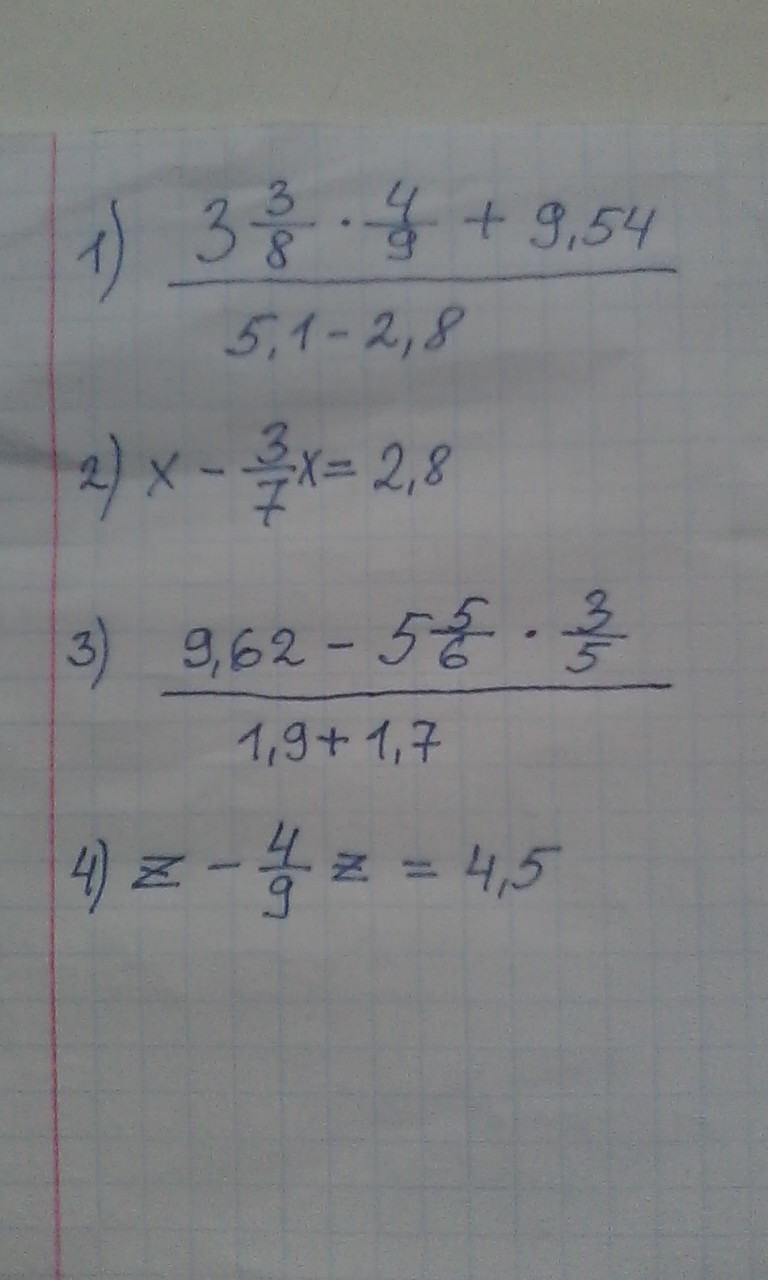 1) 3 3/8 · 4/9 + 9,54
5,1 - 2,8
2) x - 3/7 x = 2,8
3) 9,62 - 5 5/6 · 3/5
1,9 + 1,7
4) z - 4/9 z = 4,5